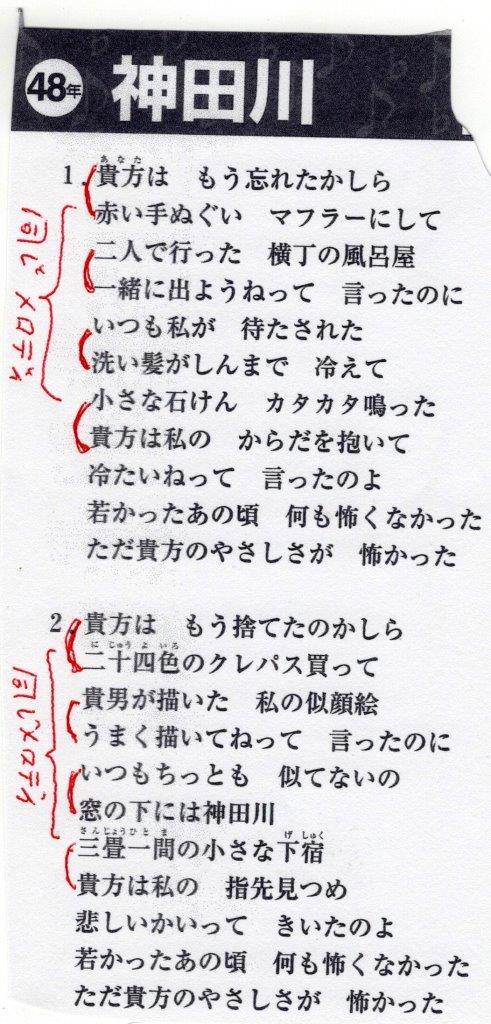 48年 神田川
1. 貴方は もう忘れたかしら
赤い手ぬぐい マフラーにして
二人で行った 横丁の風呂屋
一緒に出ようねって 言ったのに
いつも私が 待たされた
洗い髪がしんまで 冷えて
小さな石けん カタカタ鳴った
貴方は私の からだを抱いて
冷たいねって 言ったのよ
若かったあの頃 何も怖くなかった
ただ貴方のやさしさが 怖かった
同じメロディ
2. 貴方は もう捨てたのかしら
二十四色のクレパス買って
貴男が描いた 私の似顔絵
うまく描いてねって 言ったのに
いつもちっとも 似てないの
窓の下には神田川
三畳一間の小さな下宿
貴方は私の 指先見つめ
悲しいかいって きいたのよ
若かったあの頃 何も怖くなかった
ただ貴方のやさしさが 怖かった
同じメロディ